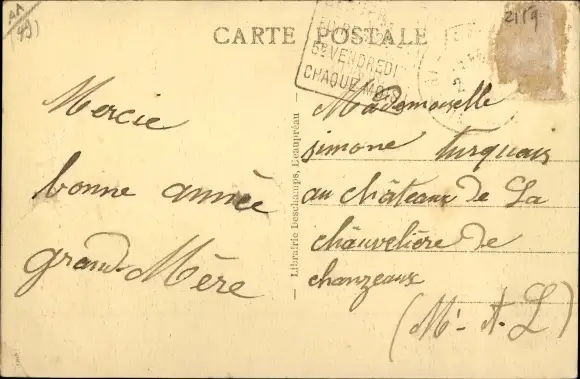 AA
(49)
2159
CARTE POSTALE
6e VENDREDI
CHAQUE MOIS
Mercie
bonne année
grand-Mère
Librairie Deschamps, Beaupréau
Mademoiselle
simone Turquais
au châteaux de La
châuvelière de
chanzeaux
(M'-A-L)